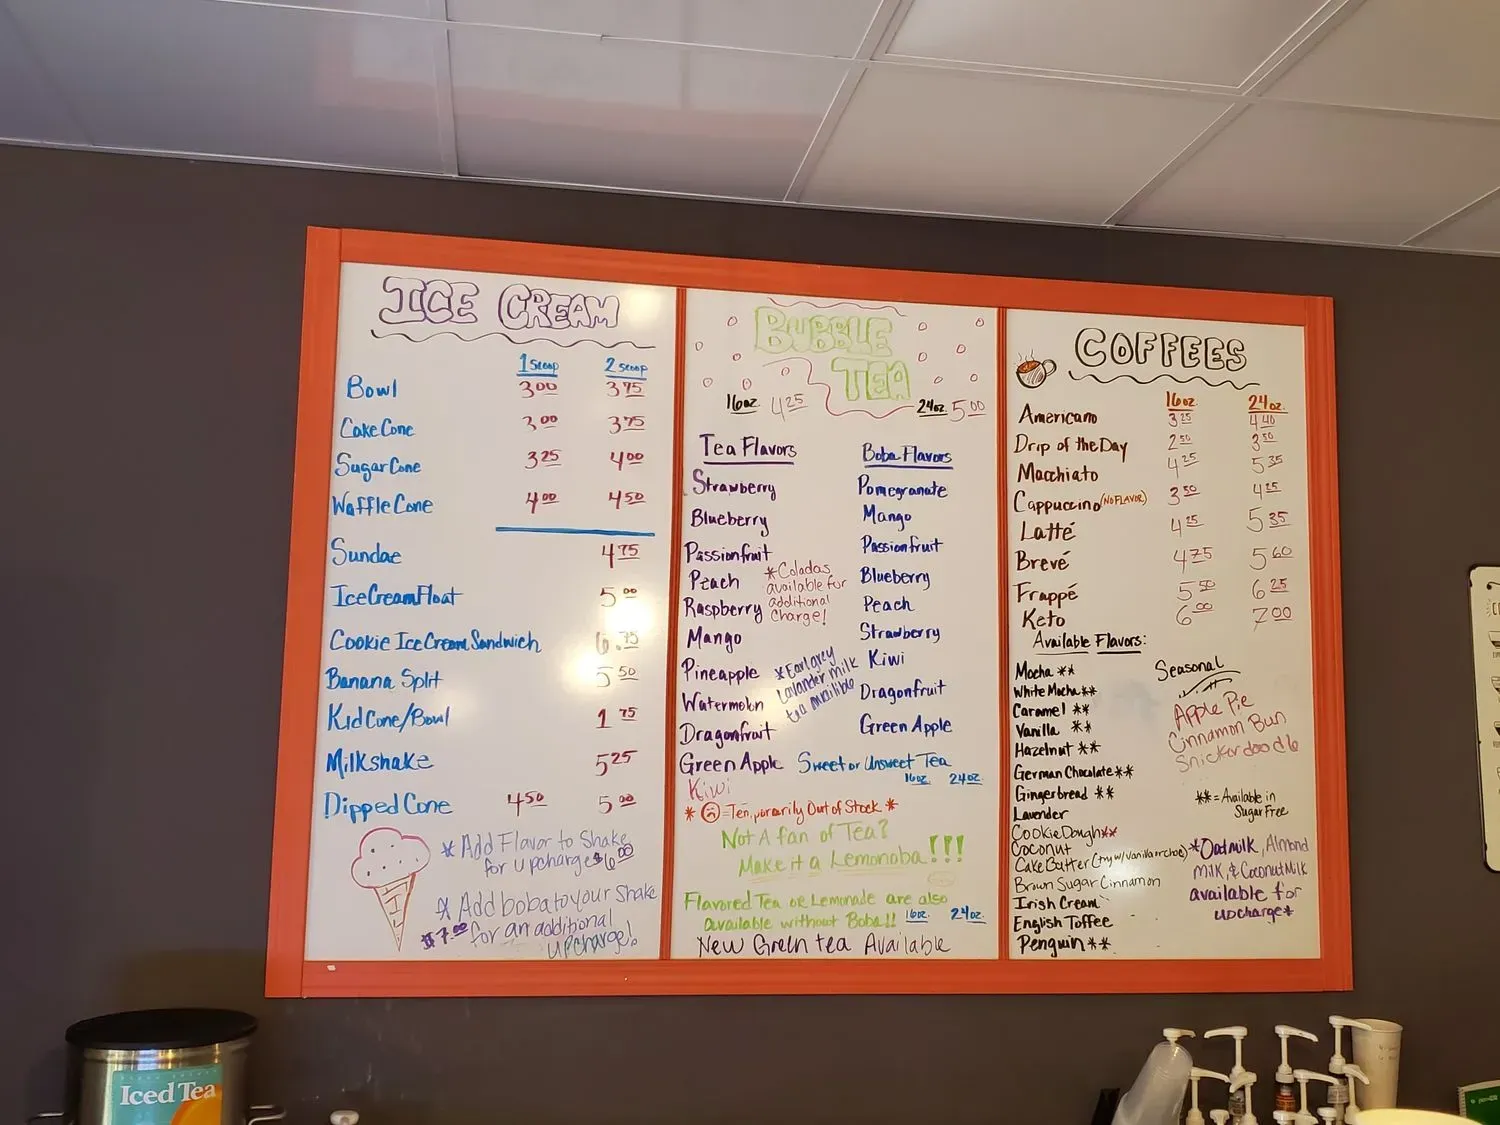 ICE CREAM
1 Scoop 2 Scoop
Bowl 3.00 3.75
Cake Cone 3.00 3.75
Sugar Cone 3.25 4.00
Waffle Cone 4.00 4.50
Sundae 4.75
Ice Cream Float 5.00
Cookie Ice Cream Sandwich 6.75
Banana Split 5.50
Kid Cone/Bowl 1.75
Milkshake 5.25
Dipped Cone 4.50 5.00
* Add Flavor to Shake
for upcharge $6.00
* Add boba to your Shake
$7.00 for an additional
upcharge!
BUBBLE
TEA
16oz. 4.25 24oz. 5.00
Tea Flavors
Strawberry
Blueberry
Passionfruit
Peach
Raspberry
Mango
Pineapple
Watermelon
Dragonfruit
Green Apple
Kiwi
*Coladas
available for
additional
charge!
*Earl grey
lavander milk
tea
Boba Flavors
Pomegranate
Mango
Passionfruit
Blueberry
Peach
Strawberry
Kiwi
Dragonfruit
Green Apple
Sweet or Unsweet Tea
16oz. 24oz.
* = Temporarily Out of Stock *
Not A fan of Tea?
Make it a Lemonoba!!!
Flavored Tea or Lemonade are also
available without Boba!! 16oz. 24oz.
New Green tea Available
COFFEES
16oz. 24oz.
Americano 3.25 4.40
Drip of the Day 2.50 3.50
Macchiato 4.25 5.35
Cappuccino (NO FLAVOR) 3.50 4.25
Latté 4.25 5.35
Brevé 4.75 5.60
Frappé 5.50 6.25
Keto 6.00 7.00
Available Flavors:
Mocha **
White Mocha **
Caramel **
Vanilla **
Hazelnut **
German Chocolate **
Gingerbread **
Lavender
Cookie Dough **
Coconut
Cake Batter
Brown Sugar Cinnamon
Irish Cream
English Toffee
Penguin **
Seasonal
Apple Pie
Cinnamon Bun
Snickerdoodle
** = Available in
Sugar Free
*Oatmilk, Almond
Milk, & Coconut Milk
available for
upcharge*
Iced Tea